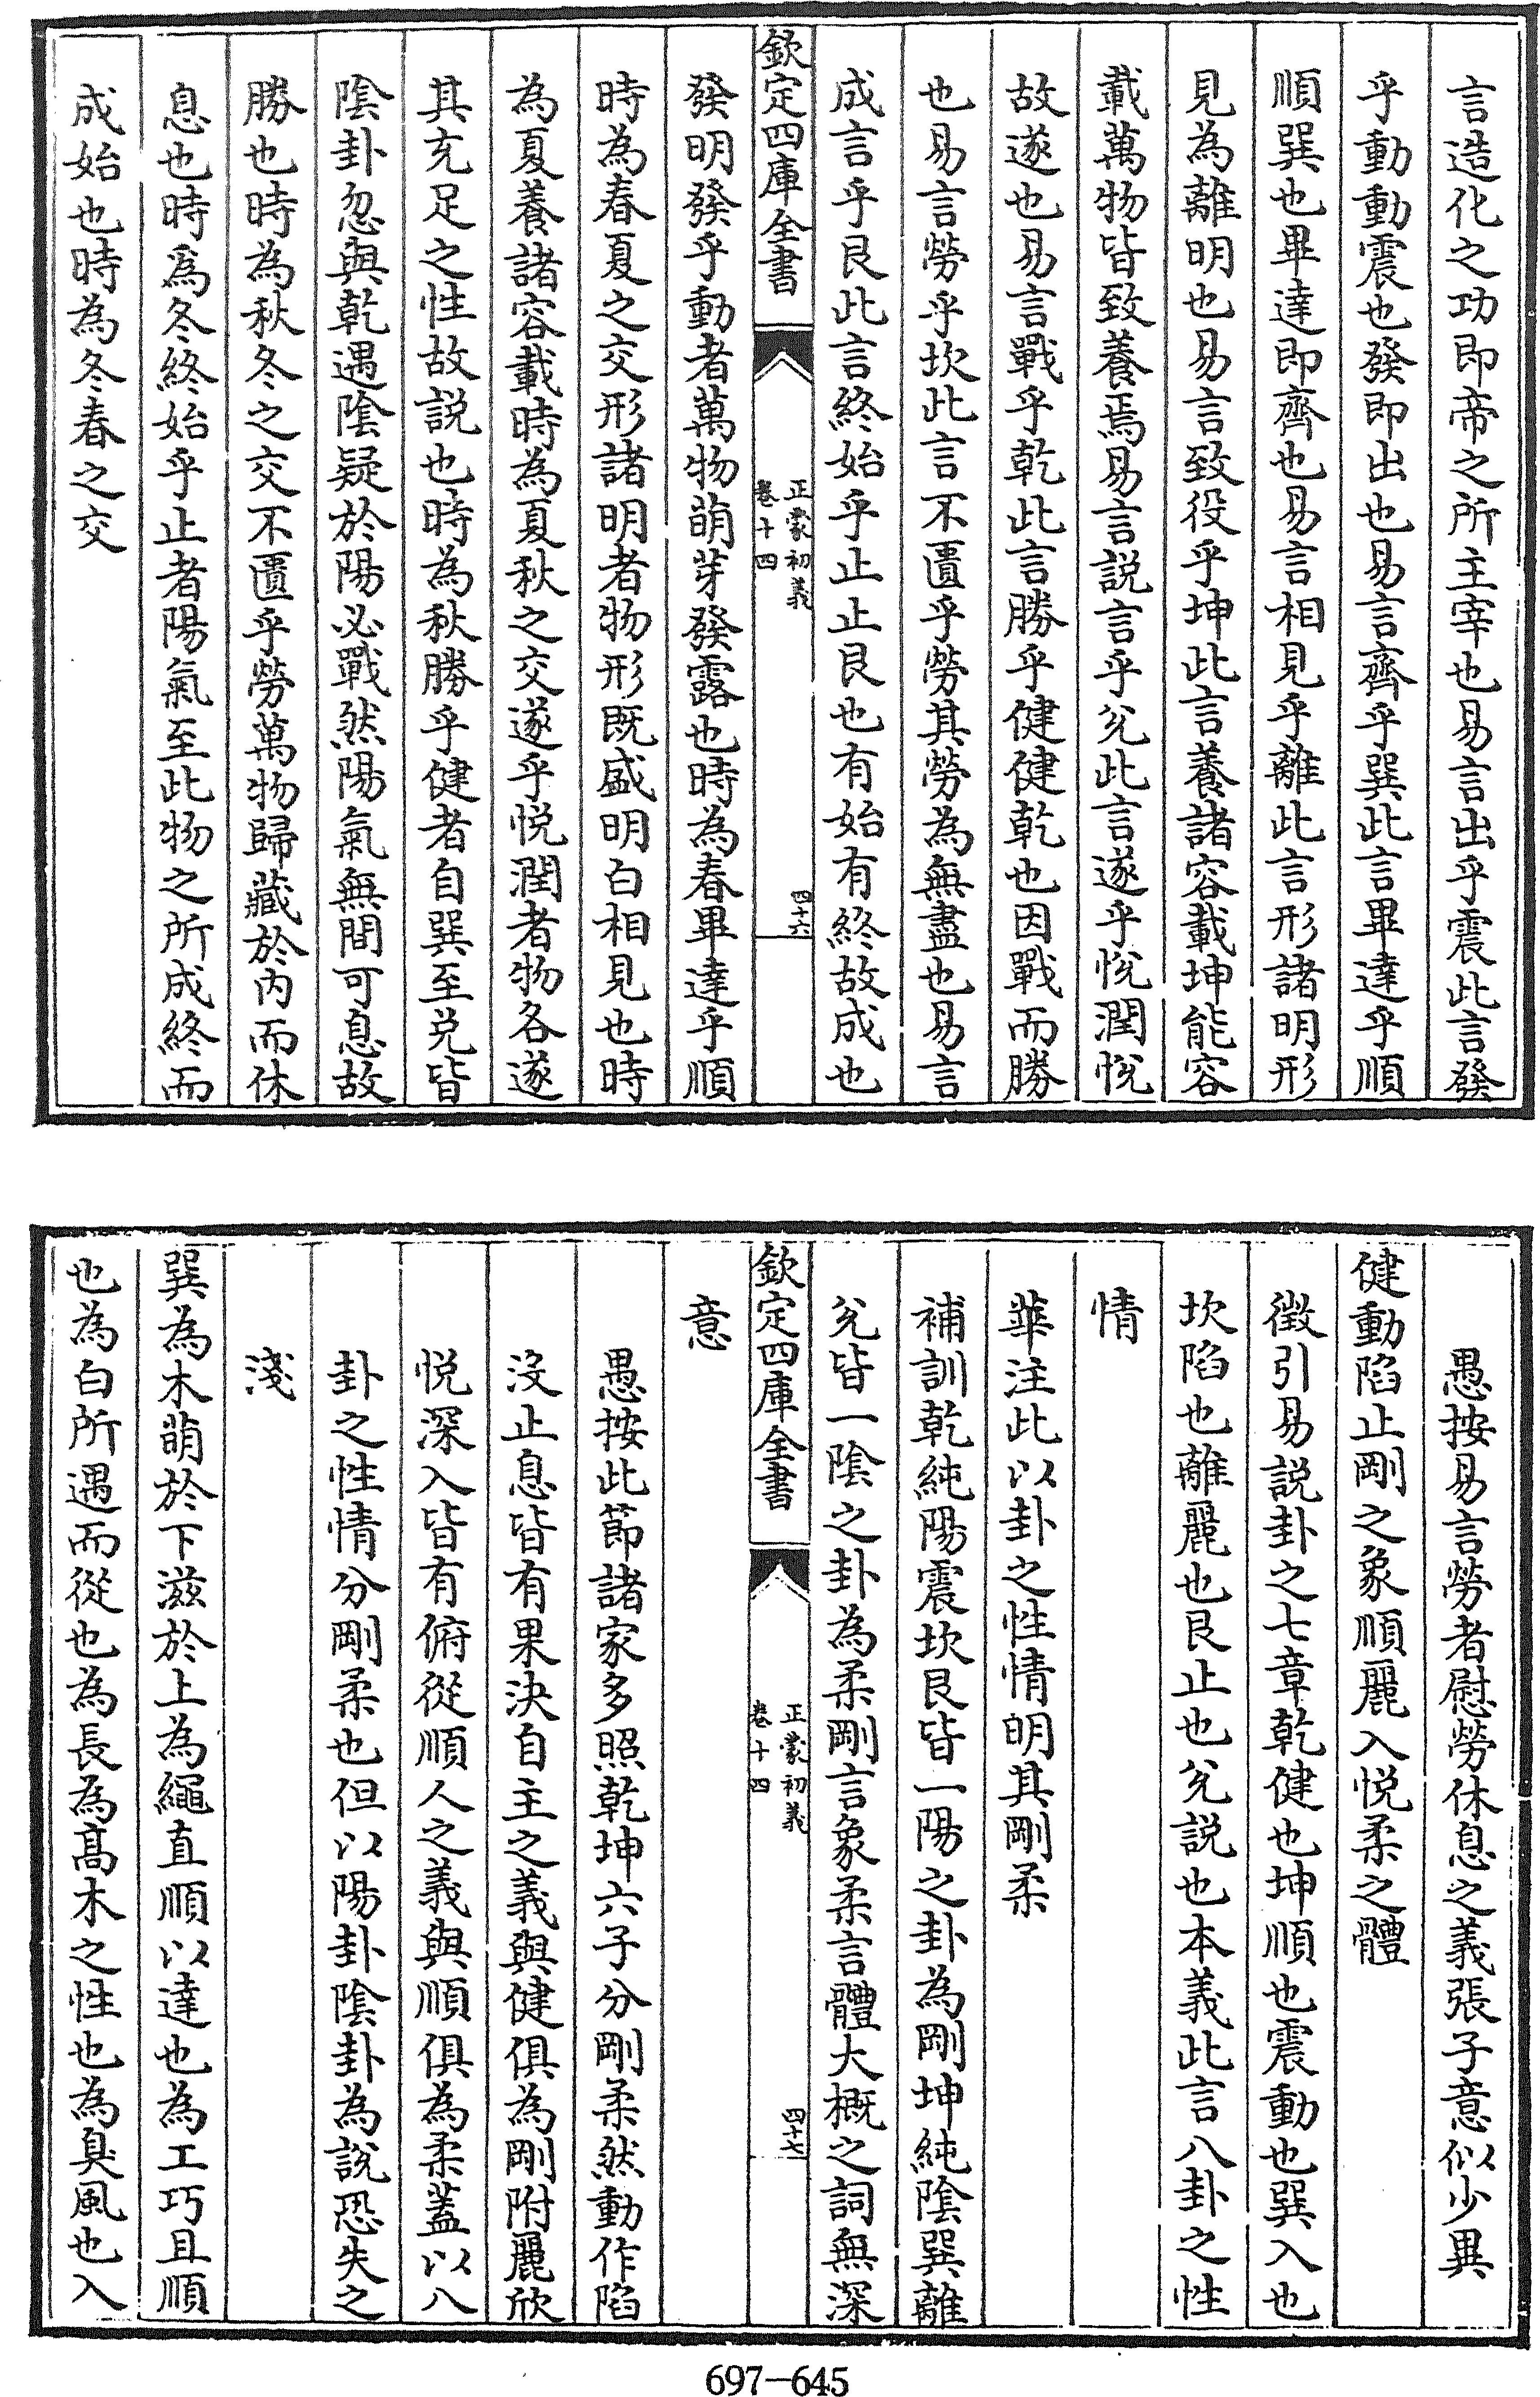 言造化之功即帝之所主宰也易言出乎震此言發
乎動動震也發即出也易言齊乎巽此言畢達乎順
順巽也畢達即齊也易言相見乎離此言形諸明形
見為離明也易言致役乎坤此言養諸容載坤能容
載萬物皆致養焉易言説言乎兊此言遂乎悦潤悦
故遂也易言戰乎乾此言勝乎健健乾也因戰而勝
也易言勞乎坎此言不匱乎勞其勞為無盡也易言
成言乎艮此言終始乎止止艮也有始有終故成也
欽定四庫全書
正蒙初義
卷十四
四十六
發明發乎動者萬物萌芽發露也時為春畢達乎順
時為春夏之交形諸明者物形既盛明白相見也時
為夏養諸容載時為夏秋之交遂乎悦潤者物各遂
其充足之性故説也時為秋勝乎健者自巽至兑皆
陰卦忽與乾遇陰疑於陽必戰然陽氣無間可息故
勝也時為秋冬之交不匱乎勞萬物歸藏於内而休
息也時爲冬終始乎止者陽氣至此物之所成終而
成始也時為冬春之交
愚按易言勞者慰勞休息之義張子意似少異
健動陷止剛之象順麗入悦柔之體
徴引易説卦之七章乾健也坤順也震動也巽入也
坎陷也離麗也艮止也兊説也本義此言八卦之性
情
華注此以卦之性情明其剛柔
補訓乾純陽震坎艮皆一陽之卦為剛坤純陰巽離
兊皆一陰之卦為柔剛言象柔言體大概之詞無深
欽定四庫全書
正蒙初義
卷十四
四十七
意
愚按此節諸家多照乾坤六子分剛柔然動作陷
沒止息皆有果決自主之義與健俱為剛附麗欣
悦深入皆有俯從順人之義與順俱為柔蓋以八
卦之性情分剛柔也但以陽卦陰卦為説恐失之
淺
巽為木萌於下滋於上為繩直順以達也為工巧且順
也為白所遇而從也為長為髙木之性也為臭風也入
697-645